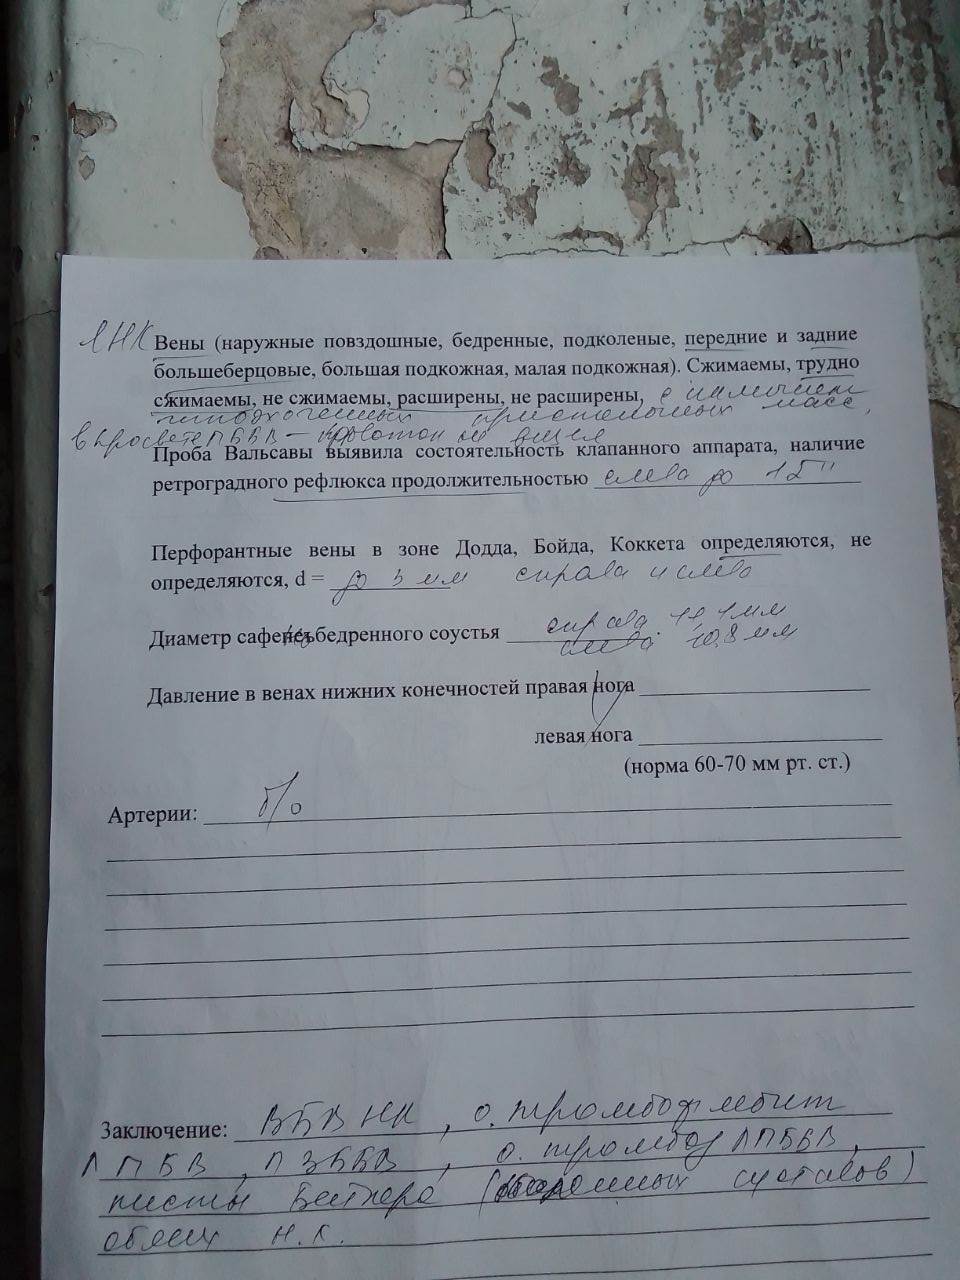 ЛНК Вены (наружные повздошные, бедренные, подколеные, передние и задние
большеберцовые, большая подкожная, малая подкожная). Сжимаемы, трудно
сжимаемы, не сжимаемы, расширены, не расширены, с наличием
гипоэхогенных пристеночных масс,
в просвете ПББВ – кровоток не
Проба Вальсавы выявила состоятельность клапанного аппарата, наличие
ретроградного рефлюкса продолжительностью слева до
Перфорантные вены в зоне Додда, Бойда, Коккета определяются, не
определяются, d = до 3 мм справа и слева
Диаметр сафено-бедренного соустья справа мм
слева 10,8 мм
Давление в венах нижних конечностей правая нога
левая нога
(норма 60-70 мм рт. ст.)
Артерии: б/о
Заключение: ВБВ НК, о. тромбофлебит
ЛПБВ, ПЗББВ, о. тромбоз ЛПББВ,
кисты Бейкера суставов)
обеих н.к.